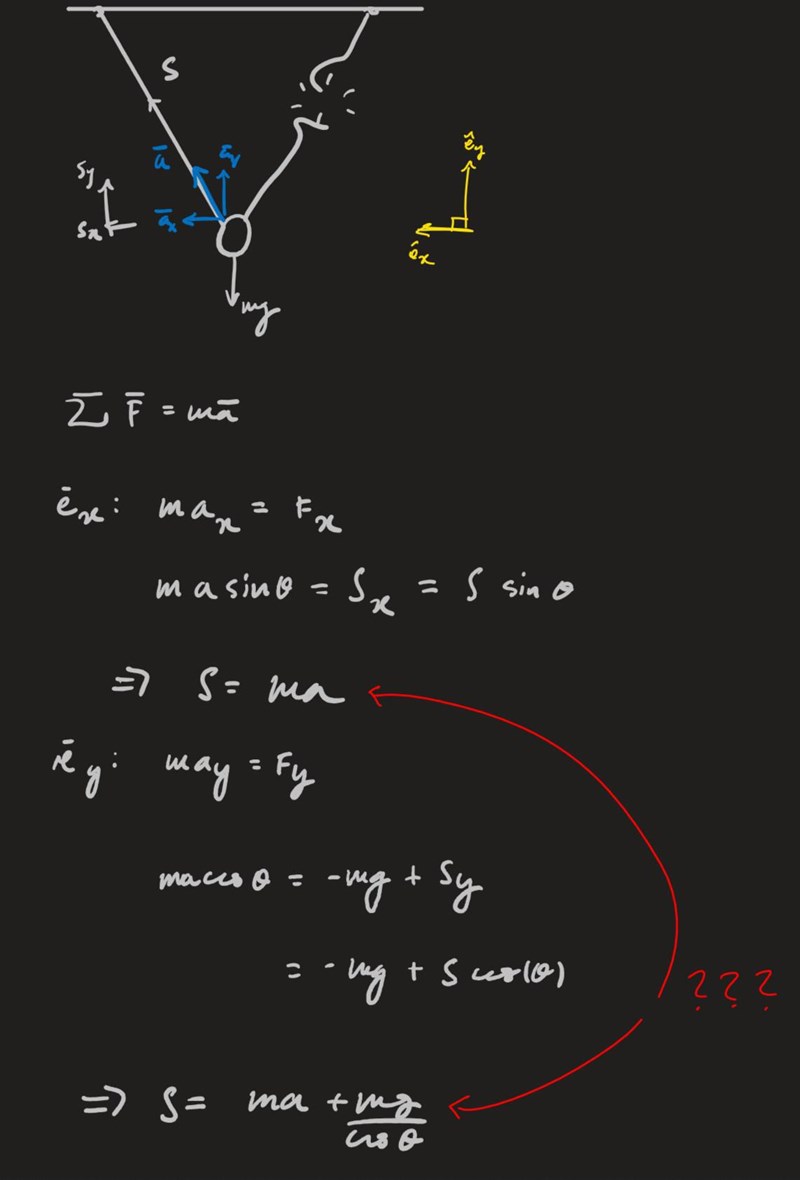 S
a̅ a̅y
Sy
Sx a̅x
mg
êy
êx
∑ F̅ = ma̅
e̅x: max = Fx
m a sinθ = Sx = S sin θ
⇒ S = ma
e̅y: may = Fy
ma cos θ = -mg + Sy
= -mg + S cos(θ)
???
⇒ S = ma + mg/cos θ